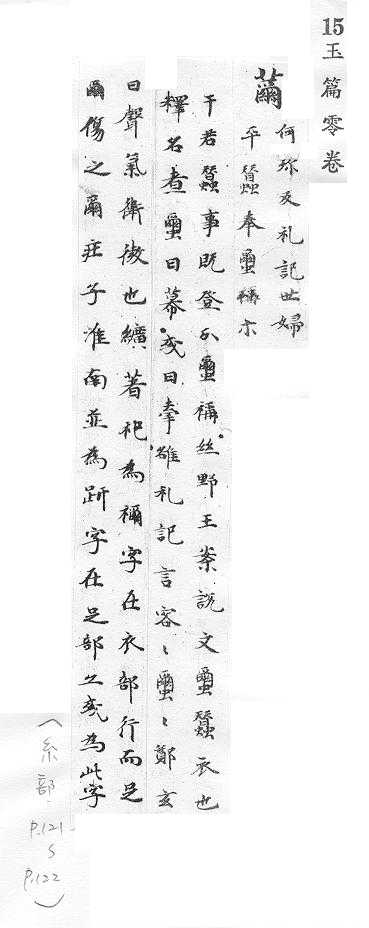 15玉篇零卷
繭
何珎反礼記世婦
卒蠶奉𮈔示
于君蠶事既登分𮈔稱絲野王案說文𮈔蠶衣也
釋名煮𮈔曰幕或曰牽離礼記言容〻𮈔〻鄭玄
曰聲氣微也纊著袍為襺字在衣部行而足
傷之莊子淮南並為趼字在足部又或為此字
(糸部 P.121~P.122)